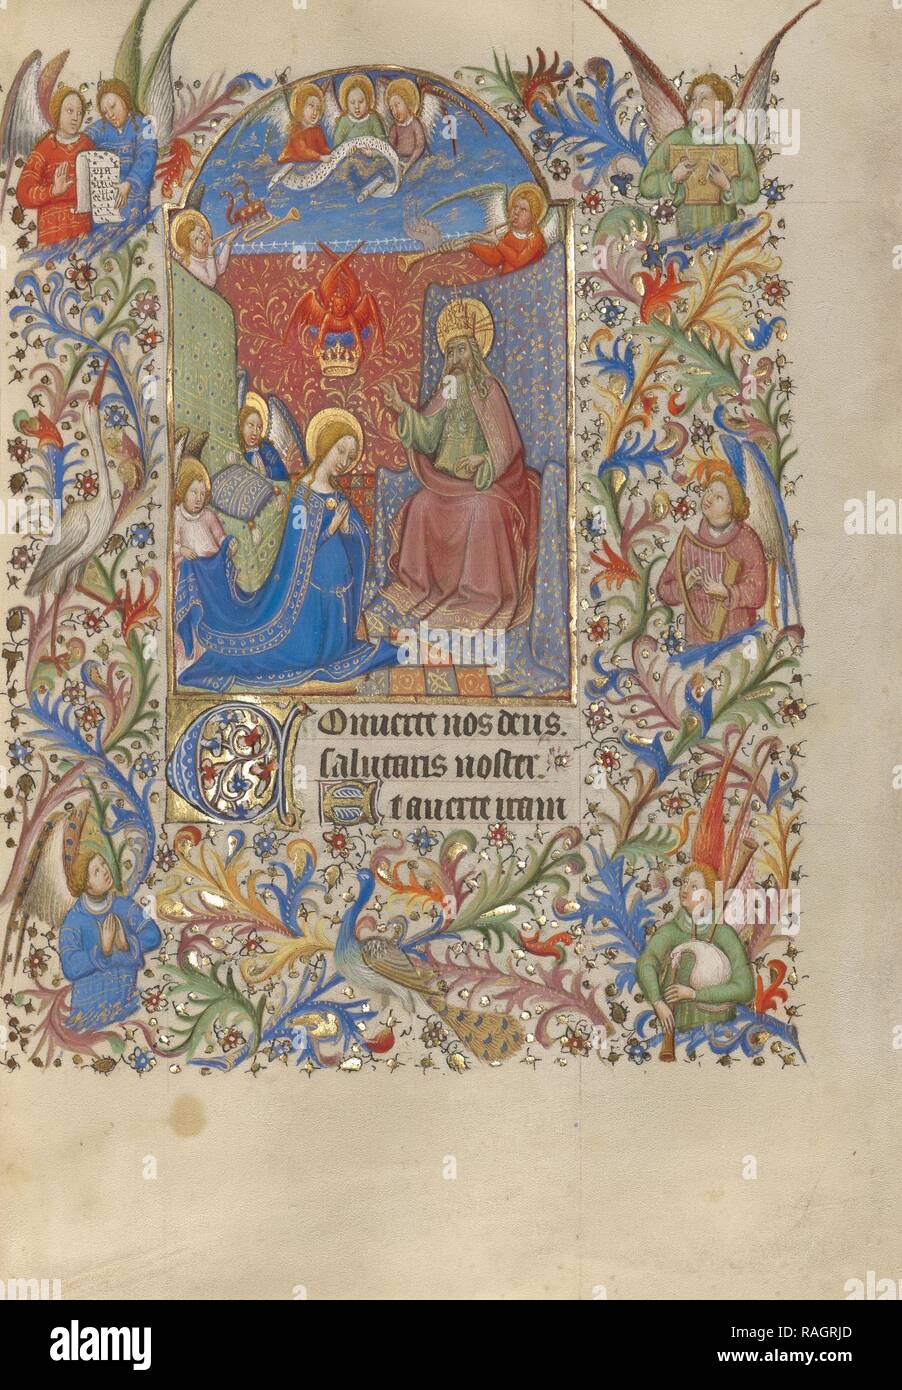 Onuerte nos deus.
salutaris noster.
Et auerte iram
alamy
Image ID: RAGRJD
www.alamy.com